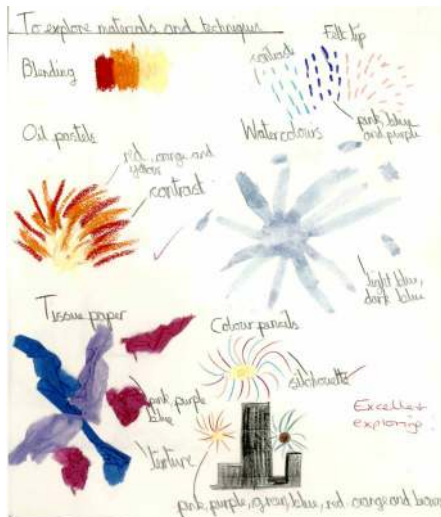 To explore materials and techniques
Blending
Felt tip
contrast
pink, blue
and purple
Oil pastels
red, orange and
yellow
contrast
Watercolours
light blue,
dark blue
Tissue paper
pink, purple
blue
texture
Colour pencils
silhouette
Excellent
exploring
pink, purple, green, blue, red, orange and brown